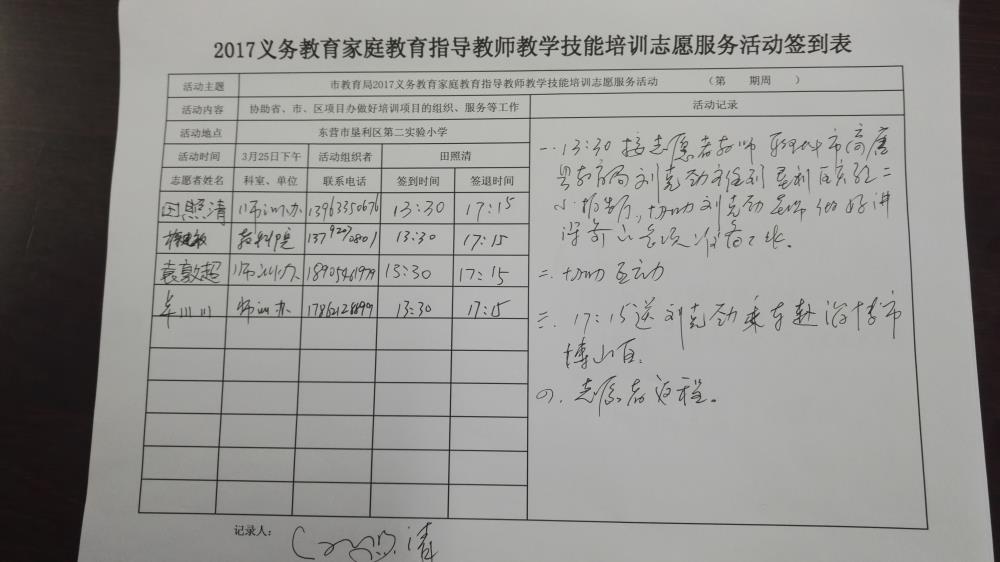 2017义务教育家庭教育指导教师教学技能培训志愿服务活动签到表
活动主题 市教育局2017义务教育家庭教育指导教师教学技能培训志愿服务活动 （第 期周 ）
活动内容 协助省、市、区项目办做好培训项目的组织、服务等工作 活动记录
活动地点 东营市垦利区第二实验小学
活动时间 3月25日下午 活动组织者 田照清
志愿者姓名 科室、单位 联系电话 签到时间 签退时间
田照清 师训办 13963350676 13:30 17:15
教科院 13792070801 13:30 17:15
袁敦超 师训办 18905461979 13:30 17:15
牟川川 师训办 13:30 17:15
一.13:30 接志愿者教师 市高唐
县教育局刘克劲主任到垦利区实验二
小报告厅，协助刘克劲老师做好讲
课前的各项准备工作。
二.协助互动
三.17:15送刘克劲乘车赴淄博市
博山区.
四.志愿者返程。
记录人： 清